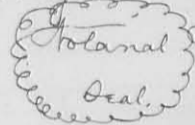 Notarial
Seal.